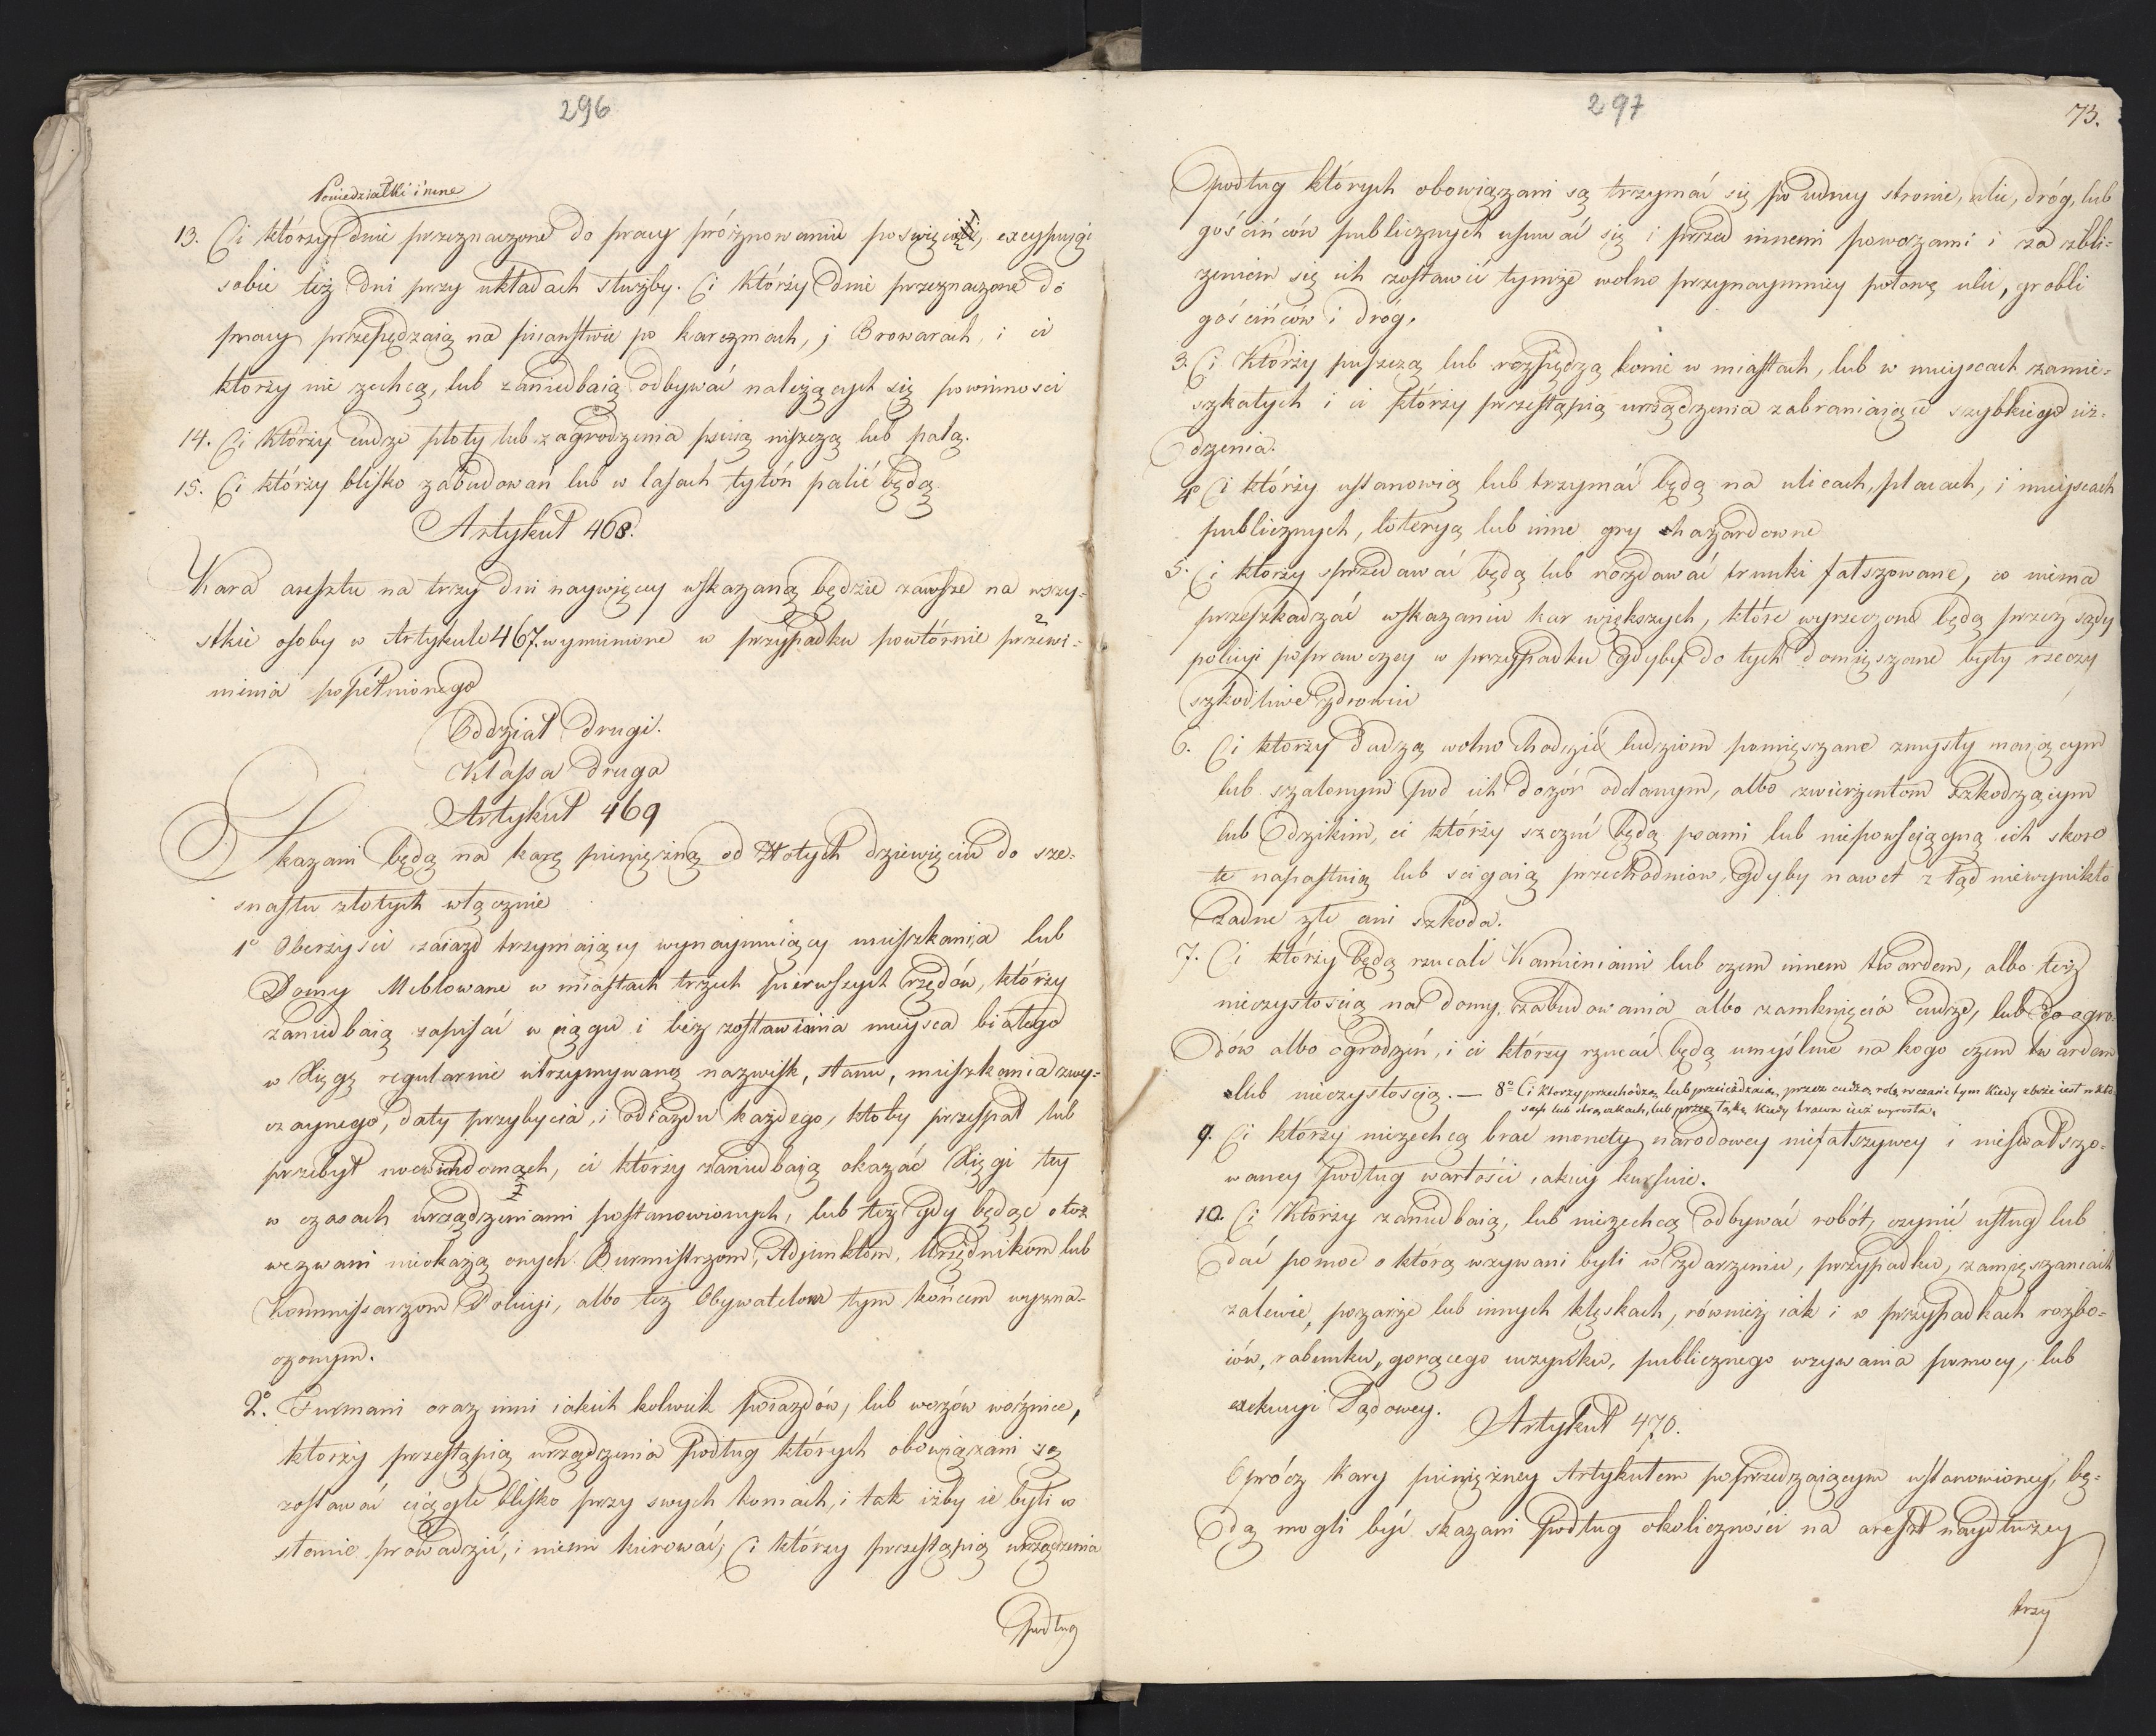 296
Poniedziałki i inne
13. Ci którzy dnie przeznaczone do pracy próżnowaniu poswięcią, excypuiąc
sobie też dni przy układach służby. Ci którzy dnie przeznaczone do
pracy przepędzaią na piiaństwie po karczmach, i Browarach, i ci
którzy nie zechcą, lub zaniedbaią odbywać należących się powinności
14. Ci którzy cudze płoty lub zagrodzenia psuią niszczą lub palą.
15. Ci którzy blisko zabudowań lub w lasach tytóń palić będą
Artykuł 468.
Kara aresztu na trzy dni naywięcey wskazaną będzie zawsze na wszy-
stkie osoby w Artykule 467. wymienione w przypadku powtórnie przewi-
nienia popełnionego
Oddział drugi.
Klassa druga
Artykuł 469
Skazani będą na karę pieniężną od złotych dziewięciu do sze-
snastu złotych włącznie
1° Oberżyści zaiazd trzymaiący wynaymuiący mieszkania lub
Domy Meblowane w miastach trzech pierwszych rzędów, którzy
zaniedbaią zapisać w ciągu i bez zostawiania mieysca białego
w Xięgę regularnie utrzymywaną nazwisk, stanu, mieszkania zwy-
czaynego, daty przybycia, i odiazdu każdego, ktoby przespał lub
przebył noc w ich domach, ci którzy zaniedbaią okazać Xięgi tey
w czasach urządzeniami postanowionych, lub też gdy będąc o toż
wezwani nieokażą onych Burmistrzom, Adjunktom, Urzędnikom lub
Kommissarzom Policyi, albo też Obywatelom tym końcem wyzna-
czonym.
2°. Furmani oraz inni iakich kolwiek poiazdów, lub wozów woźnice,
którzy przestąpią urządzenia podług których obowiązani są
zostawać ciągle blisko przy swych koniach, i tak iżby ie byli w
stanie prowadzić, i niemi kierować; Ci którzy przestąpią urządzenia
podług
297
73.
podług których obowiązani są trzymać się po iedney stronie, ulic, dróg, lub
gościńców publicznych usuwać się i przed innemi powozami i za zbli-
żeniem się ich zostawić tymże wolno przynaymniey połowę ulic, grobli
gościńców i dróg.
3. Ci Którzy puszczą lub rozpędzą konie w miastach, lub w mieyscach zamie-
szkałych i ci którzy przestąpią urządzenia zabraniaiące szybkiego ież-
dzenia.
4° Ci którzy ustanowią lub trzymać będą na ulicach, placach, i mieyscach
publicznych, loteryą lub inne gry hazardowne
5. Ci którzy sprzedawać będą lub rozdawać trunki fałszowane, co niema
przeszkadzać wskazaniu kar większych, które wyrzeczone będą przez sądy
policyi poprawczey w przypadku gdyby do tych domięszane były rzeczy
szkodliwe zdrowiu
6. Ci którzy dadzą wolno chodzić ludziom pomięszane zmysły maiącym
lub szalonym pod ich dozór oddanym, albo zwierzentom szkodzącym
lub dzikim, ci którzy szczuć będą psami lub niepowściągną ich skoro
te napastuią lub scigaią przechodniow, gdyby nawet z tąd niewynikło
żadne złe ani szkoda.
7. Ci którzy będą rzucali Kamieniami lub czem innem twardem, albo też
nieczystością na domy, zabudowania albo zamknięcia cudze, lub do ogro-
dów albo ogrodzeń, i ci którzy rzucać będą umyślnie na kogo czem twardem
lub nieczystością. — 8° Ci Którzy przechodzą, lub przeieżdzaią, przez cudzą rolę, w czasie tym kiedy zboże iest w kło-
sach lub strączkach, lub przez łąkę kiedy trawa iuż wyrosła.
9. Ci którzy niezechcą brać monety narodowey niefałszywey i niesfałszo-
waney podług wartości iakiey kursuie.
10. Ci Którzy zaniedbaią, lub niezechcą odbywać robót, czynić usług lub
dać pomoc o którą wzywani byli w zdarzeniu, przypadku, zamięszaniach
zalewie, pożarze lub innych klęskach, również iak i w przypadkach rozbo-
iów, rabunku, gorącego uczynku, publicznego wzywania pomocy, lub
exekucyi Sądowey.
Artykuł 470.
Oprócz Kary pieniężney Artykułem poprzedzaiącym ustanowioney, bę-
dą mogli być skazani podług okoliczności na areszt naydłużey
trzy